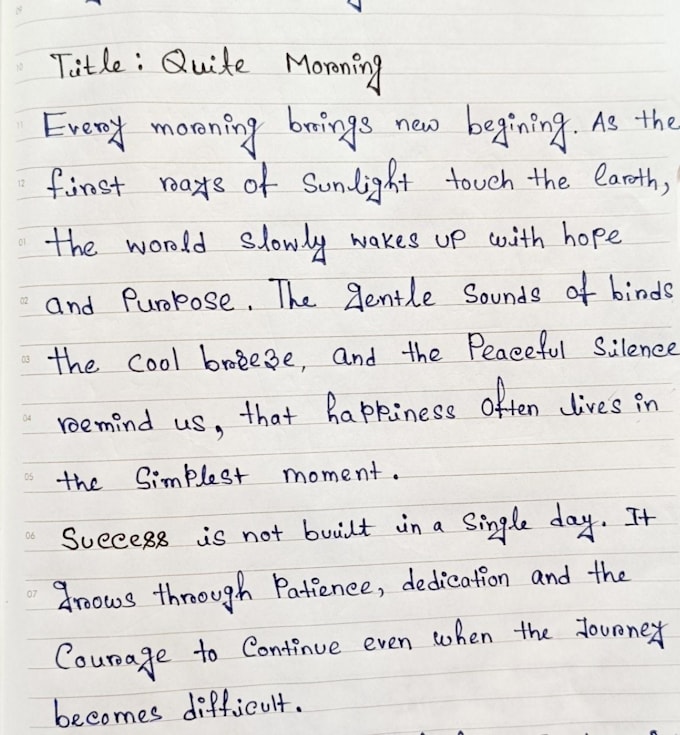 Title: Quite Morning
Every morning brings new begining. As the
first rays of Sunlight touch the Earth,
the world slowly wakes up with hope
and Purpose. The gentle Sounds of binds
the cool breeze, and the Peaceful Silence
remind us, that happiness Often lives in
the Simplest moment.
Success is not built in a Single day. It
grows through Patience, dedication and the
Courage to Continue even when the Journey
becomes difficult.